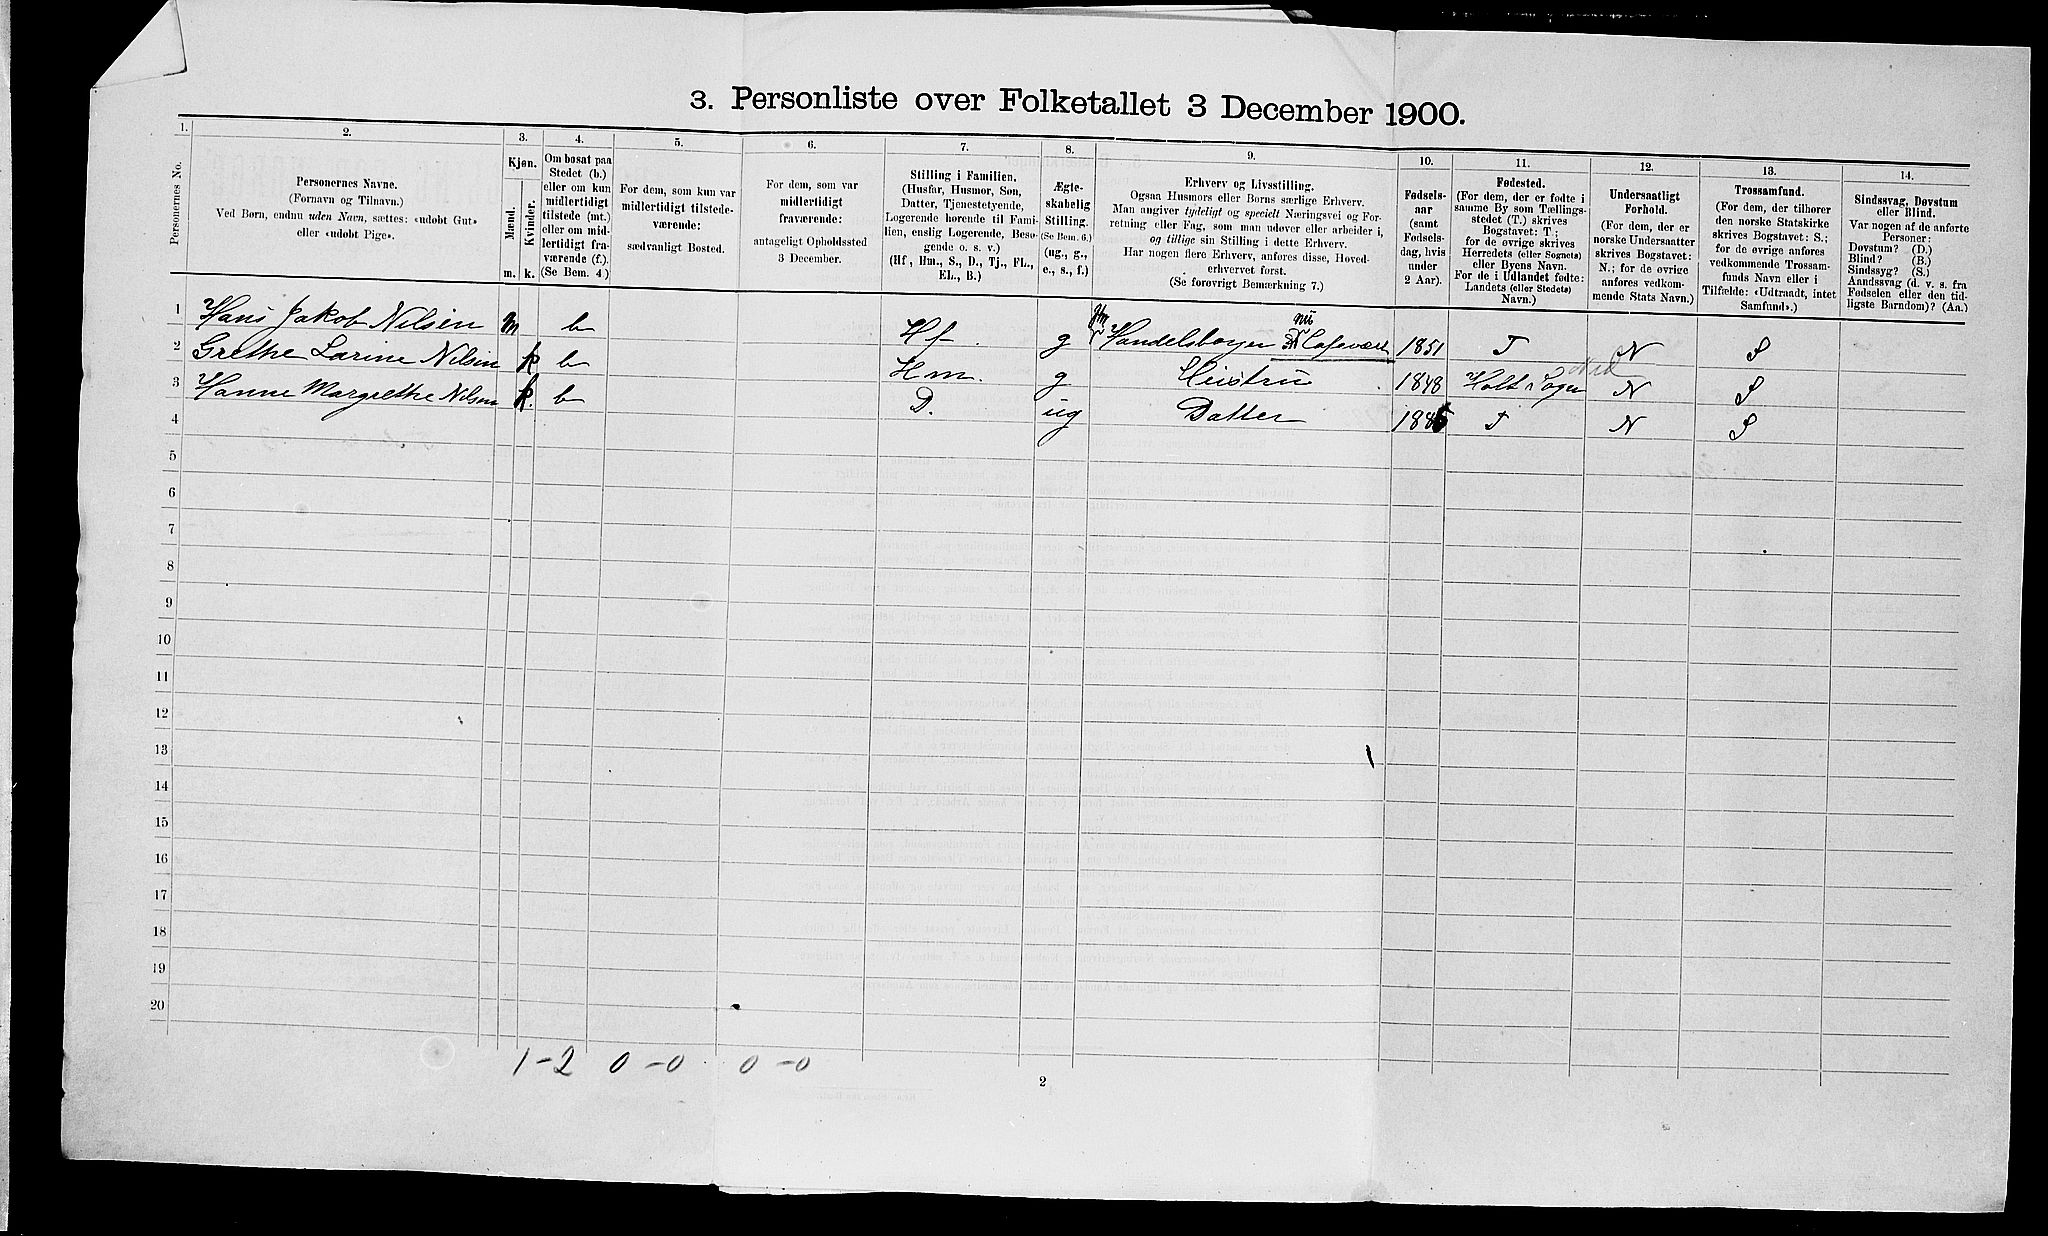 3. Personliste over Folketallet 3 December 1900.
1. 2. 3. 4. 5. 6. 7. 8. 9. 10. 11. 12. 13. 14.
Personernes No.
Personernes Navne.
(Fornavn og Tilnavn.)
Ved Børn, endnu uden Navn, sættes: «udøbt Gut»
eller «udøbt Pige».
Kjøn.
Mænd.
Kvinder.
m. k.
Om bosat paa
Stedet (b.)
eller om kun
midlertidigt
tilstede (mt.)
eller om mid-
lertidigt fra-
værende (f.).
(Se Bem. 4.)
For dem, som kun var
midlertidigt tilstede-
værende:
sædvanligt Bosted.
For dem, som var
midlertidigt
fraværende:
antageligt Opholdssted
3 December.
Stilling i Familien.
(Husfar, Husmor, Søn,
Datter, Tjenestetyende,
Logerende hørende til Fami-
lien, enslig Logerende, Besø-
gende o. s. v.)
(Hf., Hm., S., D., Tj., FL.,
EL., B.)
Ægte-
skabelig
Stilling.
(Se Bem. 6.)
(ug., g.,
e., s., f.)
Erhverv og Livsstilling.
Ogsaa Husmors eller Børns særlige Erhverv.
Man angiver tydeligt og specielt Næringsvei og For-
retning eller Fag, som man udøver eller arbeider i,
og tillige sin Stilling i dette Erhverv.
Har nogen flere Erhverv, anføres disse, Hoved-
erhvervet først.
(Se forøvrigt Bemærkning 7.)
Fødsels-
aar
(samt
Fødsels-
dag, hvis
under
2 Aar).
Fødested.
(For dem, der er fødte i
samme By som Tællings-
stedet (T.) skrives
Bogstavet: T.;
for de øvrige skrives
Herredets (eller Sognets)
eller Byens Navn.
For de i Udlandet fødte:
Landets (eller Stedets)
Navn.)
Undersaatligt
Forhold.
(For dem, der er
norske Undersaatter
skrives Bogstavet:
N.; for de øvrige
anføres vedkom-
mende Stats Navn.)
Trossamfund.
(For dem, der tilhører
den norske Statskirke
skrives Bogstavet: S.;
for de øvrige anføres
vedkommende Trossam-
funds Navn eller i
Tilfælde: «Udtraadt, intet
Samfund».)
Sindssvag, Døvstum
eller Blind.
Var nogen af de anførte
Personer:
Døvstum? (D.)
Blind? (B.)
Sindssyg? (S.)
Aandssvag (d. v. s. fra
Fødselen eller den tid-
ligste Barndom)? (Aa.)
1 Hans Jakob Nilsen m b Hf. g Handelsborger nu Cafevært 1851 T N S
2 Grethe Larine Nilsen k b Hm. g Hustru 1848 Holt Sogn Ned N S
3 Hanne Margrethe Nilsen k. b D. ug Datter 1885 T N S
4
5
6
7
8
9
10
11
12
13
14
15
16
17
18
19
20
1-2 0-0 0-0
2